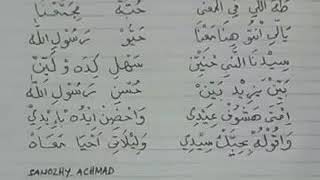 طٰهَ اللِّي فِي الْمَعْنَى حُبُّهُ مِجَمَّعْنَا
يَاللِّي انْتُو هِنَا مَعْنَا حَيُّوْ رَسُوْلَ اللّٰه
سِيْدْنَا النَّبِي حُنَيِّنْ سَهْلِ كِدَهْ وَلَيِّنْ
بَيِّنْ يَزِيْد بَيِّنْ حُسْنِ رَسُوْلِ اللّٰه
اِمْتَى هَشُوْف عِيْدِي وَاحْضِنْ اِيْدُه بِاِيْدِي
وَاقُوْلُهْ بِحِبَّكْ سِيْدِي وَلِيْلَاتِي اَحْيَا مَعَاهْ
SANOZHY. ACHMAD